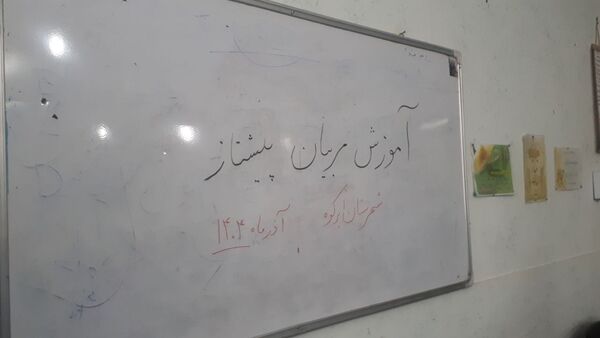 آموزش مربیان پیشتاز
شهرستان ابرکوه آذرماه ۱۴۰۴